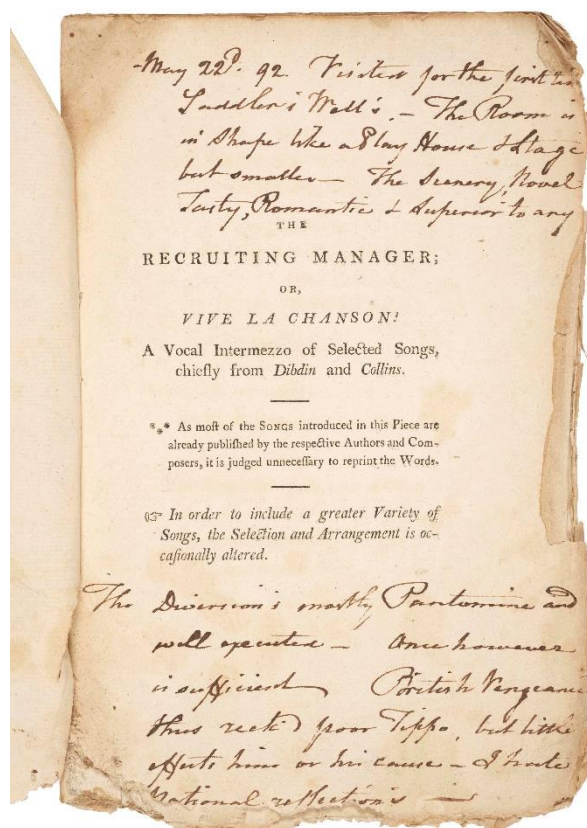 May 22d. 92. Visited for the first
Saddler's Wells. – The Room is
in Shape like a Play House & Stage
but smaller – The Scenery, Novel
Tasty, Romantic & Superior to any
THE
RECRUITING MANAGER;
OR,
VIVE LA CHANSON!
A Vocal Intermezzo of Selected Songs,
chiefly from Dibdin and Collins.
*** As moſt of the SONGS introduced in this Piece are
already publiſhed by the reſpective Authors and Com-
poſers, it is judged unneceſſary to reprint the Words.
☞ In order to include a greater Variety of
Songs, the Selection and Arrangement is oc-
caſionally altered.
The Diversion's mostly Pantomine and
well executed – Once however
is sufficient British Vengeance
thus reek'd poor Tippo, but little
effects him or his cause – I hate
National reflections –